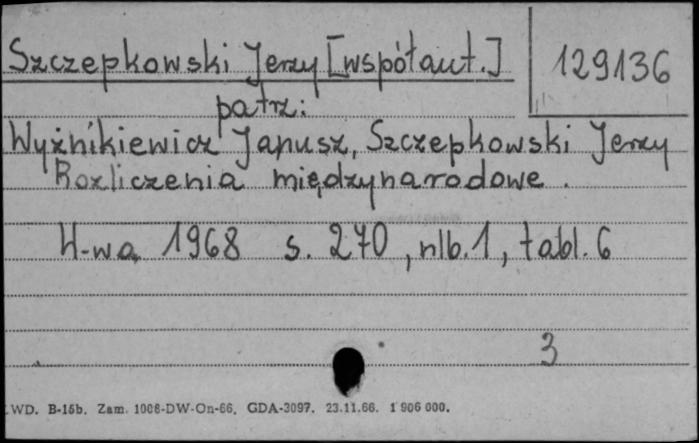 Szczepkowski Jerzy [współaut.]
129136
patrz:
Wyżnikiewicz Janusz, Szczepkowski Jerzy
Rozliczenia międzynarodowe.
W-wa 1968 s. 270, nlb. 1, tabl. 6
3
WD. B-15b. Zam. 1008-DW-On-66. GDA-3097. 23.11.66. 1 906 000.